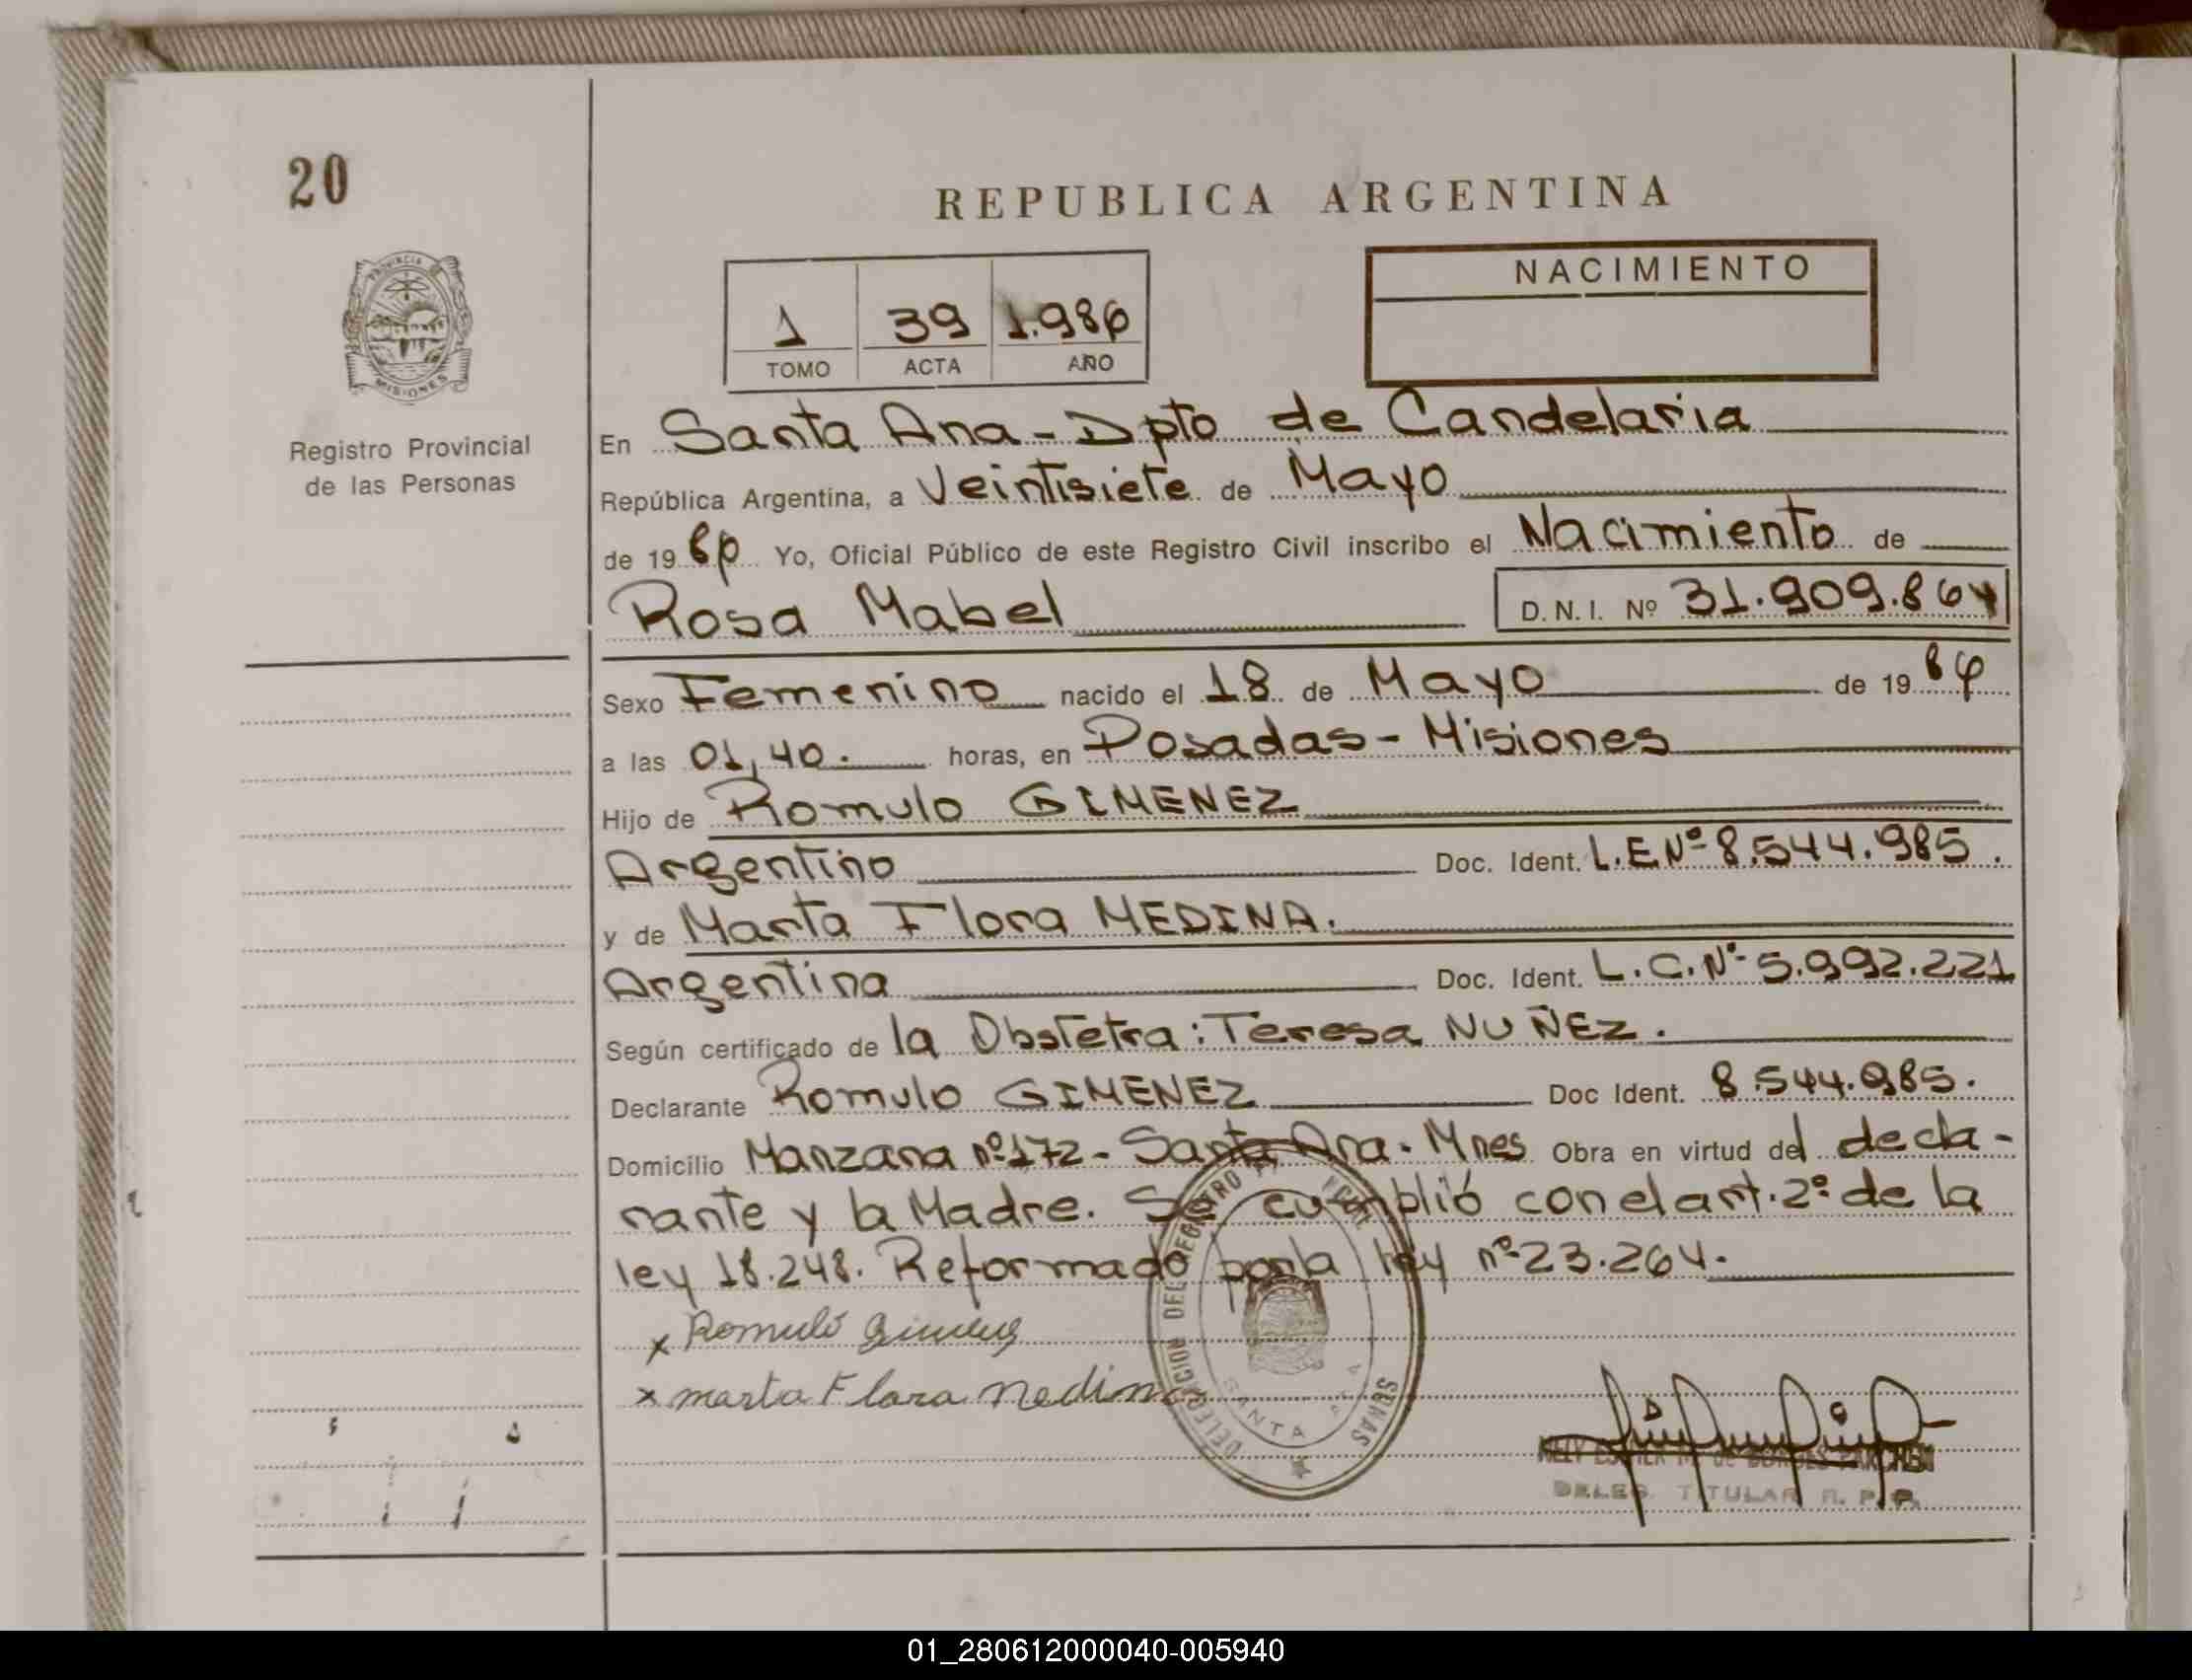 20
REPUBLICA ARGENTINA
NACIMIENTO
1 39 1.986
TOMO ACTA AÑO
PROVINCIA DE
MISIONES
Registro Provincial
de las Personas
En Santa Ana - Dpto de Candelaria
República Argentina, a Veintisiete de Mayo
de 19 86 Yo, Oficial Público de este Registro Civil inscribo el Nacimiento de
Rosa Mabel D. N. I. Nº 31.909.864
Sexo Femenino nacido el 18 de Mayo de 19 86
a las 01,40. horas, en Posadas - Misiones
Hijo de Romulo GIMENEZ
Argentino Doc. Ident. L.E Nº 8.544.985.
y de Marta Flora MEDINA.
Argentina Doc. Ident. L.C. Nº 5.992.221
Según certificado de la Obstetra: Teresa NUÑEZ.
Declarante Romulo GIMENEZ Doc Ident. 8.544.985.
Domicilio Manzana nº 172 - Santa Ana - Mnes Obra en virtud del decla-
rante y la Madre. Se cumplió con el art. 2º de la
ley 18.248. Reformado por la ley nº 23.264.
x Romulo Gimenez
x marta Flora medina
DELEGACION DEL REGISTRO
SANTA ANA
DELEG. TITULAR R. P. P.
01_280612000040-005940